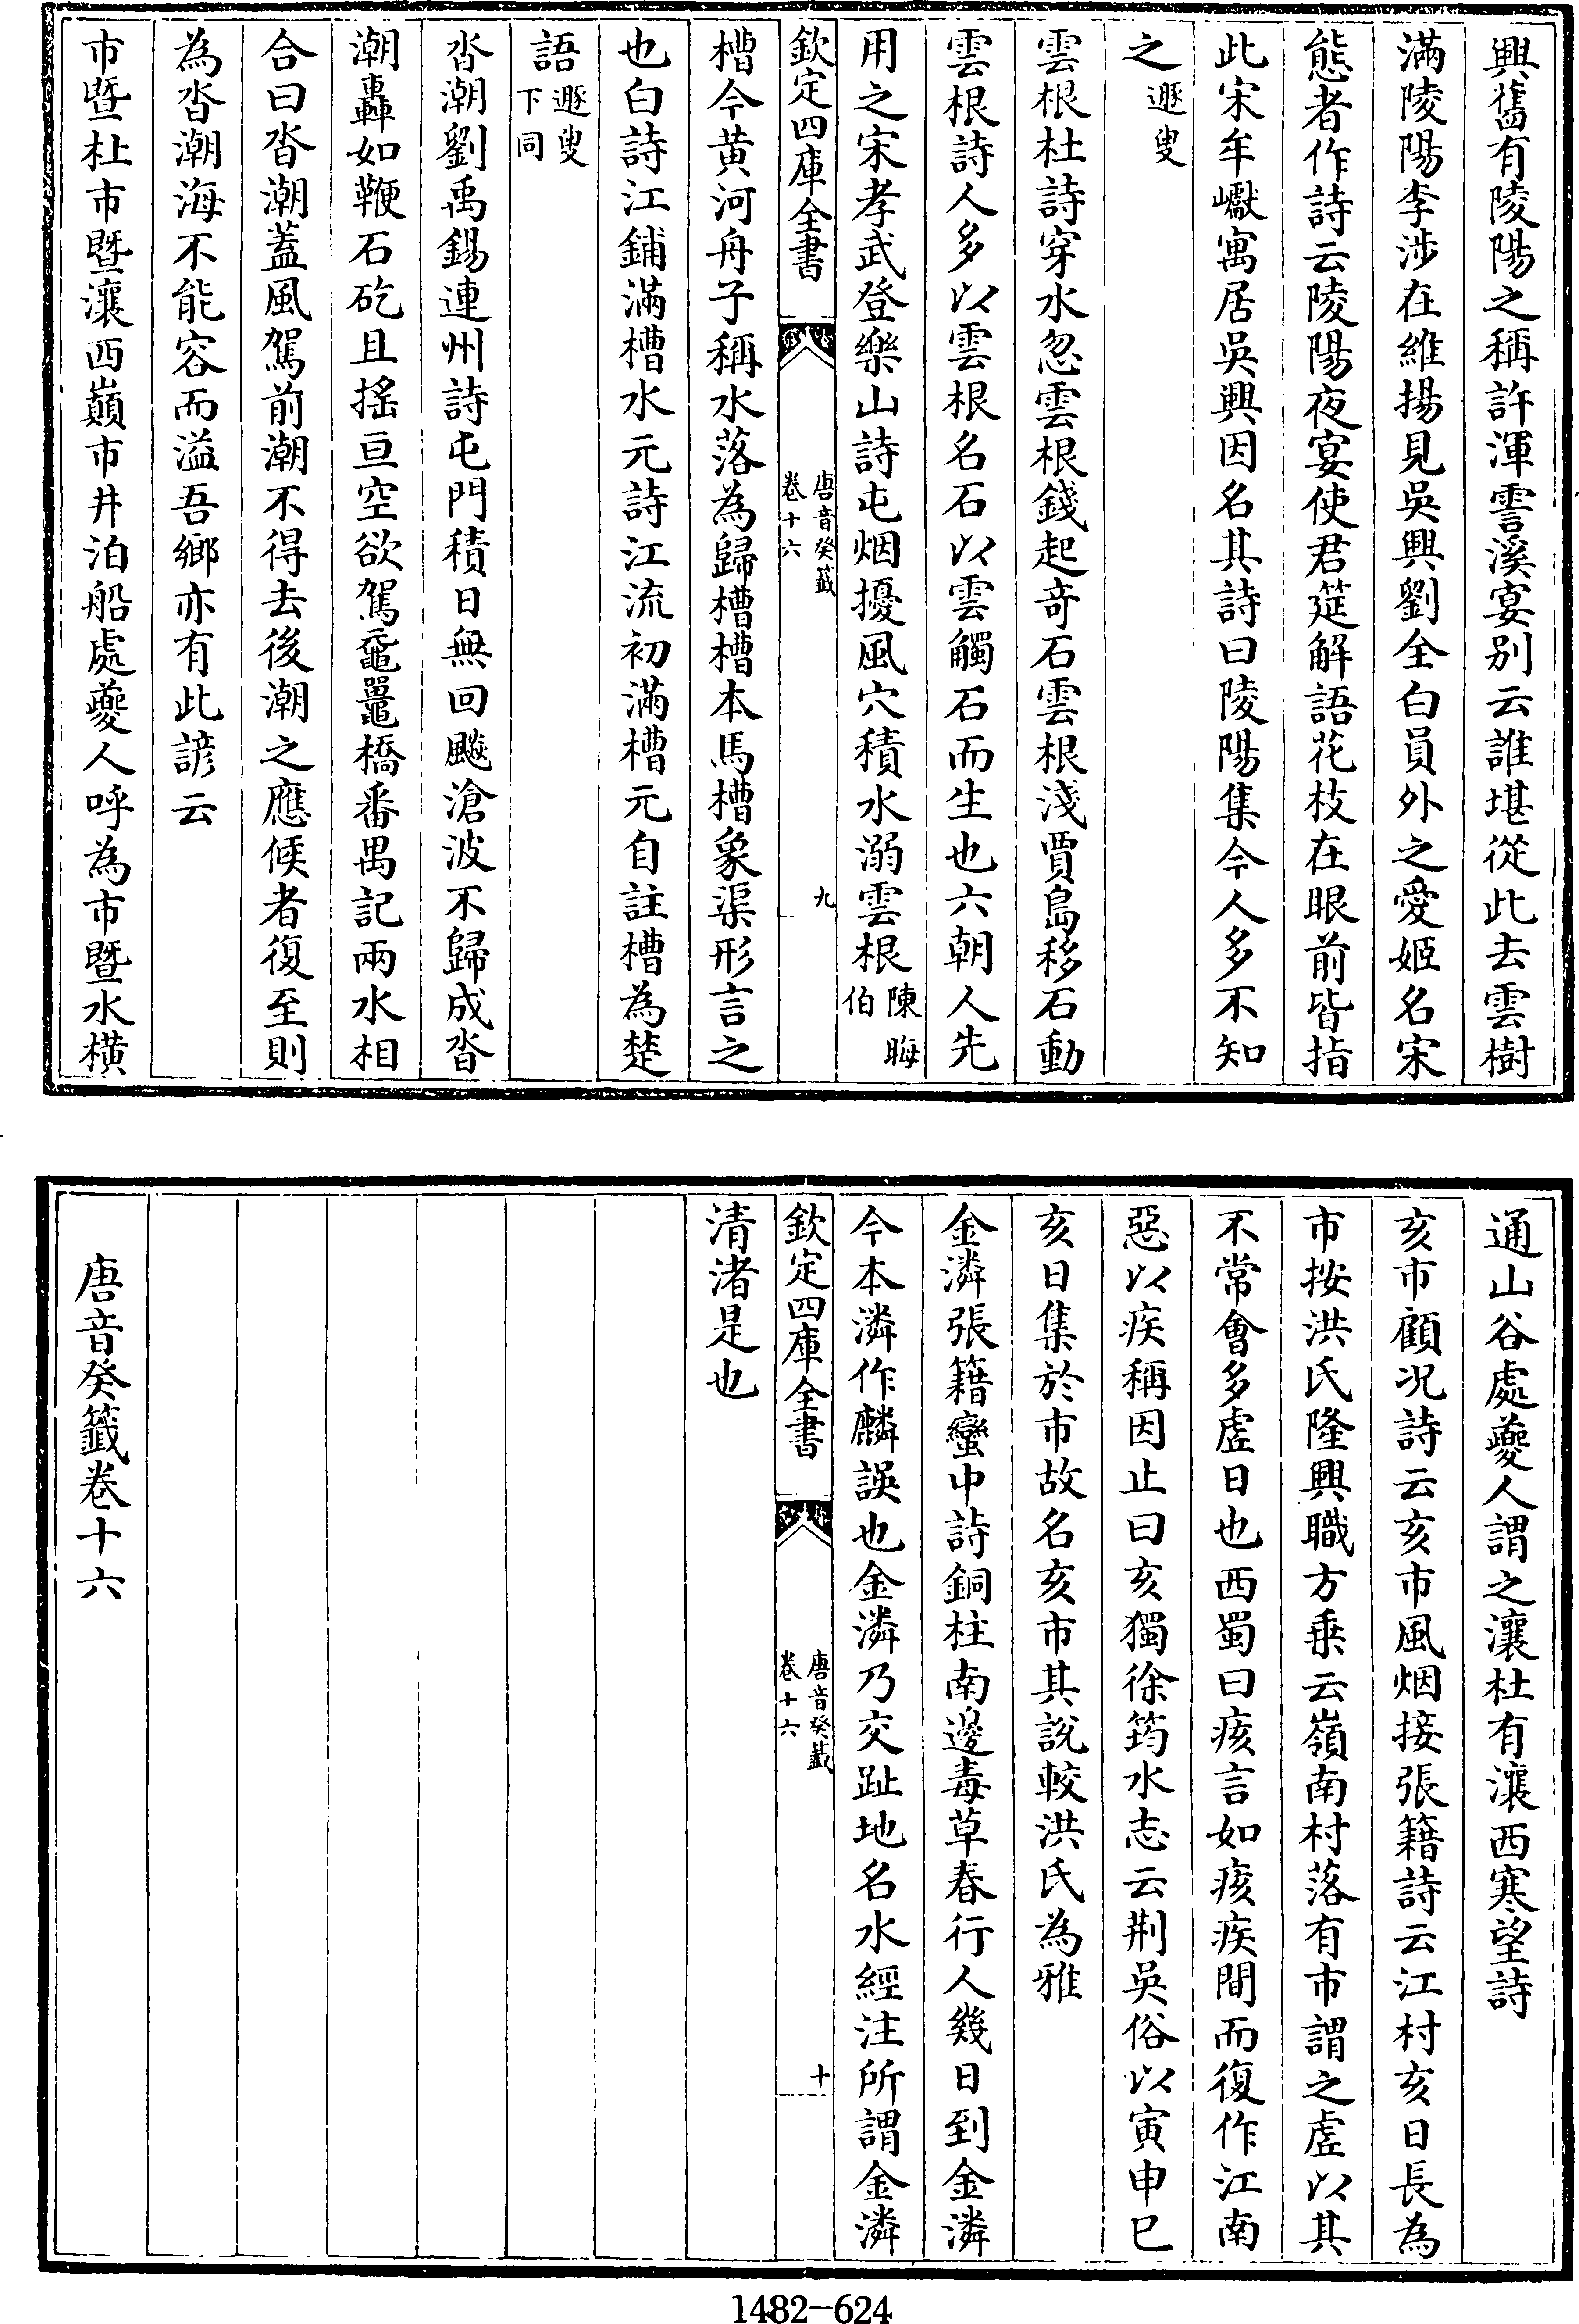 興舊有陵陽之稱許渾霅溪宴别云誰堪從此去雲樹
滿陵陽李涉在維揚見吳興劉全白員外之愛姬名宋
態者作詩云陵陽夜宴使君筵解語花枝在眼前皆指
此宋牟巘寓居吳興因名其詩曰陵陽集今人多不知
之遯叟
雲根杜詩穿水忽雲根錢起竒石雲根淺賈島移石動
雲根詩人多以雲根名石以雲觸石而生也六朝人先
用之宋孝武登樂山詩屯烟擾風穴積水溺雲根陳晦伯
欽定四庫全書
唐音癸籤
卷十六
九
槽今黄河舟子稱水落為歸槽槽本馬槽象渠形言之
也白詩江鋪滿槽水元詩江流初滿槽元自註槽為楚
語遯叟下同
沓潮劉禹錫連州詩屯門積日無回飈滄波不歸成沓
潮轟如鞭石矻且搖亘空欲駕黿鼉橋番禺記兩水相
合曰沓潮蓋風駕前潮不得去後潮之應候者復至則
為沓潮海不能容而溢吾鄉亦有此諺云
市暨杜市暨瀼西巔市井泊船處夔人呼為市暨水橫
通山谷處夔人謂之瀼杜有瀼西寒望詩
亥市顧况詩云亥市風烟接張籍詩云江村亥日長為
市按洪氏隆興職方乗云嶺南村落有市謂之虛以其
不常會多虛日也西蜀曰痎言如痎疾間而復作江南
惡以疾稱因止曰亥獨徐筠水志云荆吳俗以寅申巳
亥日集於市故名亥市其說較洪氏為雅
金潾張籍蠻中詩銅柱南邊毒草春行人幾日到金潾
今本潾作麟誤也金潾乃交趾地名水經注所謂金潾
欽定四庫全書
唐音癸籤
卷十六
十
清渚是也
唐音癸籤卷十六
1482-624